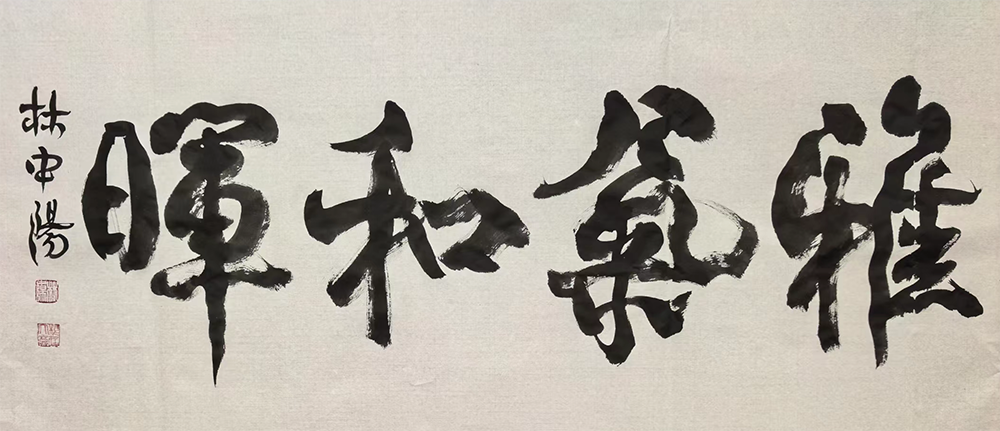 雅氣和暉
林中陽